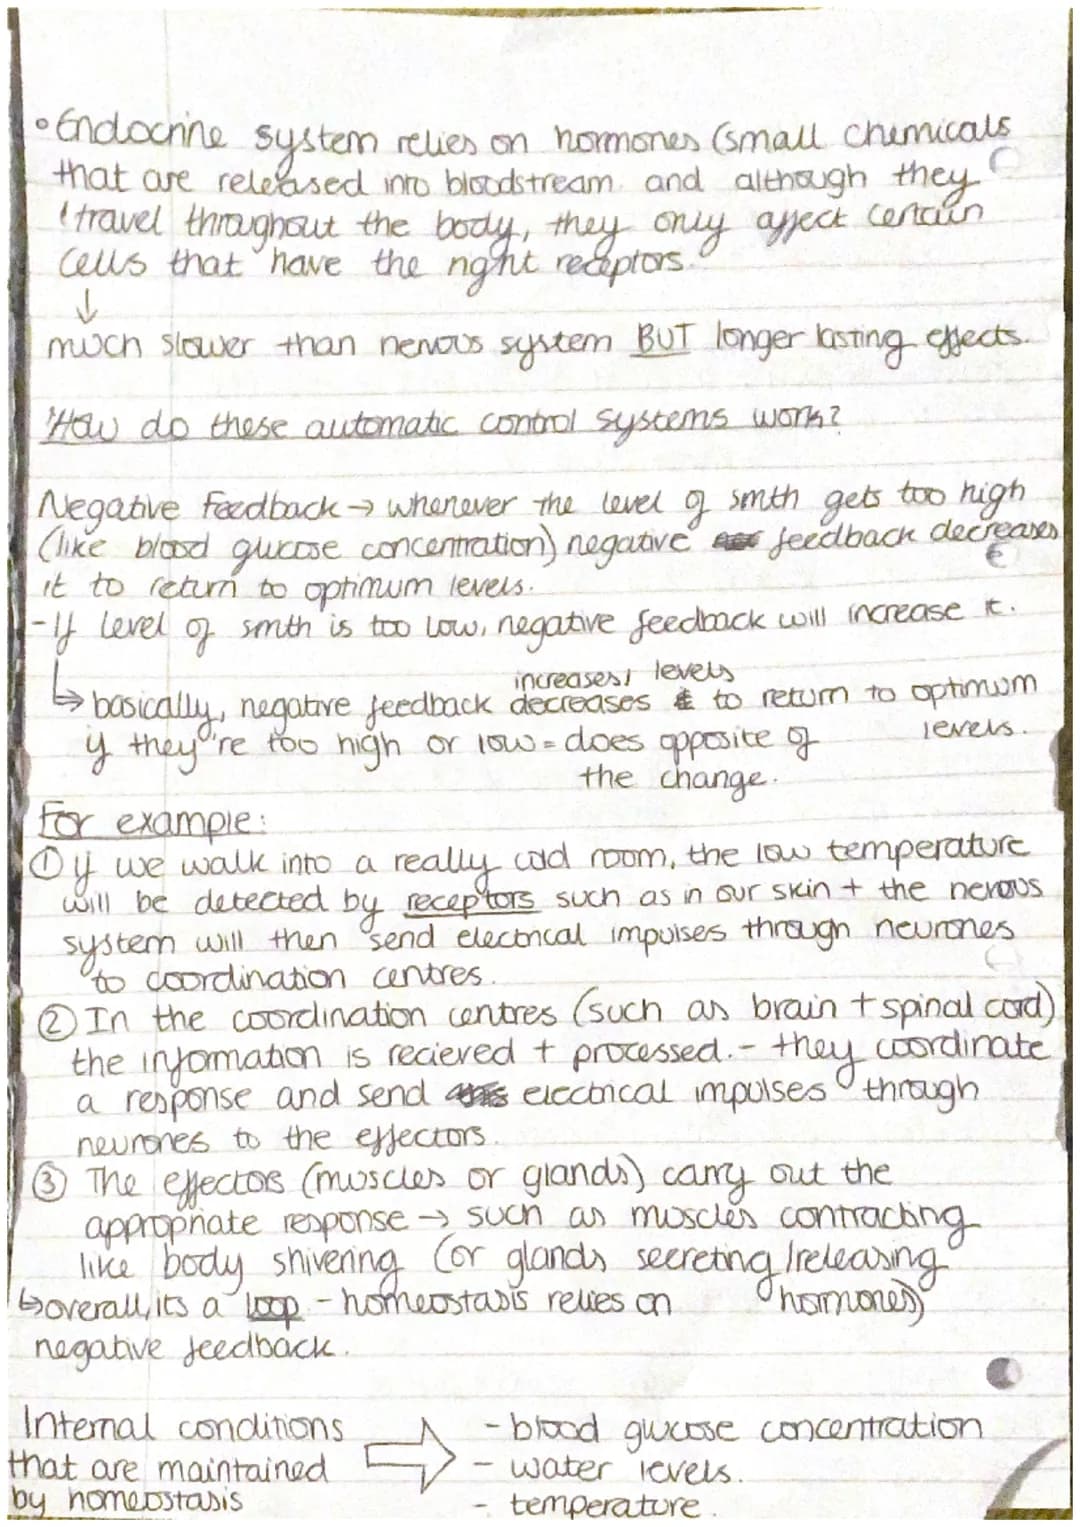 • Endocrine system relies on hormones (small chemicals
that are released into bloodstream and although they
travel throughout the body, they only affect certain
cells that have the right receptors.
↓
much slower than nervous system BUT longer lasting effects.
How do these automatic control systems work?
Negative Feedback → whenever the level of smth gets too high
(like blood glucose concentration) negative feedback decreases
it to return to optimum levels.
- If level of smth is too low, negative feedback will increase it.
increases/ levels
↳ basically, negative feedback decreases to return to optimum
if they're too high or low = does opposite of levels.
the change.
For example:
① If we walk into a really cold room, the low temperature
will be detected by receptors such as in our skin + the nervous
system will then send electrical impulses through neurones
to coordination centres.
② In the coordination centres (such as brain + spinal cord)
the information is recieved + processed. - they coordinate
a response and send electrical impulses through
neurones to the effectors.
③ The effectors (muscles or glands) carry out the
appropriate response → such as muscles contracting
like body shivering (or glands secreting/releasing
↳ overall, its a loop - homeostasis relies on hormones)
negative feedback.
Internal conditions ⇨ - blood glucose concentration
that are maintained - water levels.
by homeostasis - temperature.